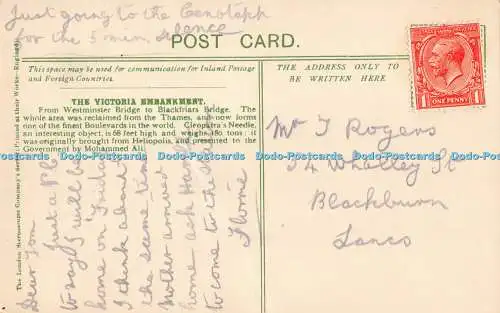 Just going to the Cenotaph
for the 5 min silence
POST CARD.
This space may be used for communication for Inland Postage
and Foreign Countries.
THE ADDRESS ONLY TO
BE WRITTEN HERE
THE VICTORIA EMBANKMENT.
From Westminster Bridge to Blackfriars Bridge. The
whole area was reclaimed from the Thames, and now forms
one of the finest Boulevards in the world. Cleopatra's Needle,
an interesting object, is 68 feet high and weighs 180 tons: it
was originally brought from Heliopolis, and presented to the
Government by Mohammed Ali.
The London Stereoscopic Company's Series (Printed at their Works—England)
Dear Tom
Just a P.C.
to say I will be
home on Friday
I think about
the same time
Mother arrived
home ask
to come to the
ONE PENNY
Mr T Rogers
34 Whalley St
Blackburn
Lancs
Dodo-Postcards Dodo-Postcards Dodo-Postcards Dodo-Postcards